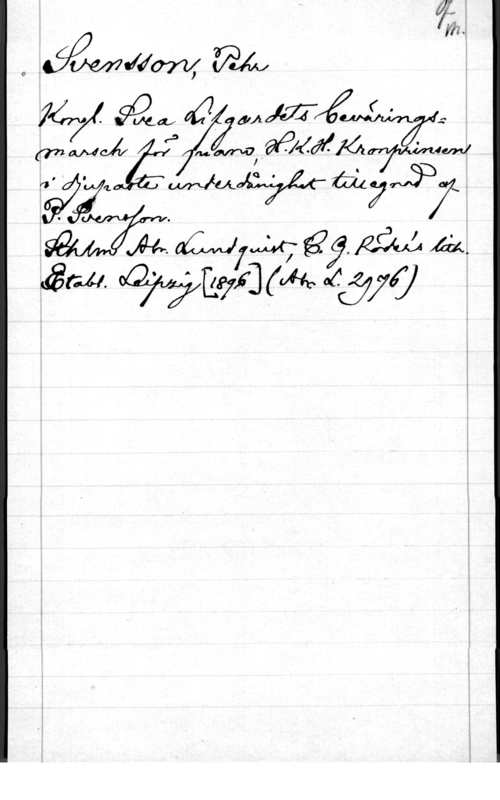 qf
m.
Svensson, Pehr
Kongl. Svea Lifgardets bevärings=
marsch för piano, H.K.H. Kronprinsen
i djupaste underdånighet tillegnad af
P. Svensson.
Sthlm Abr. Lundquist, C. G. Röder's lith.
Etabl. Leipzig [1896] (Abr L. 2976)